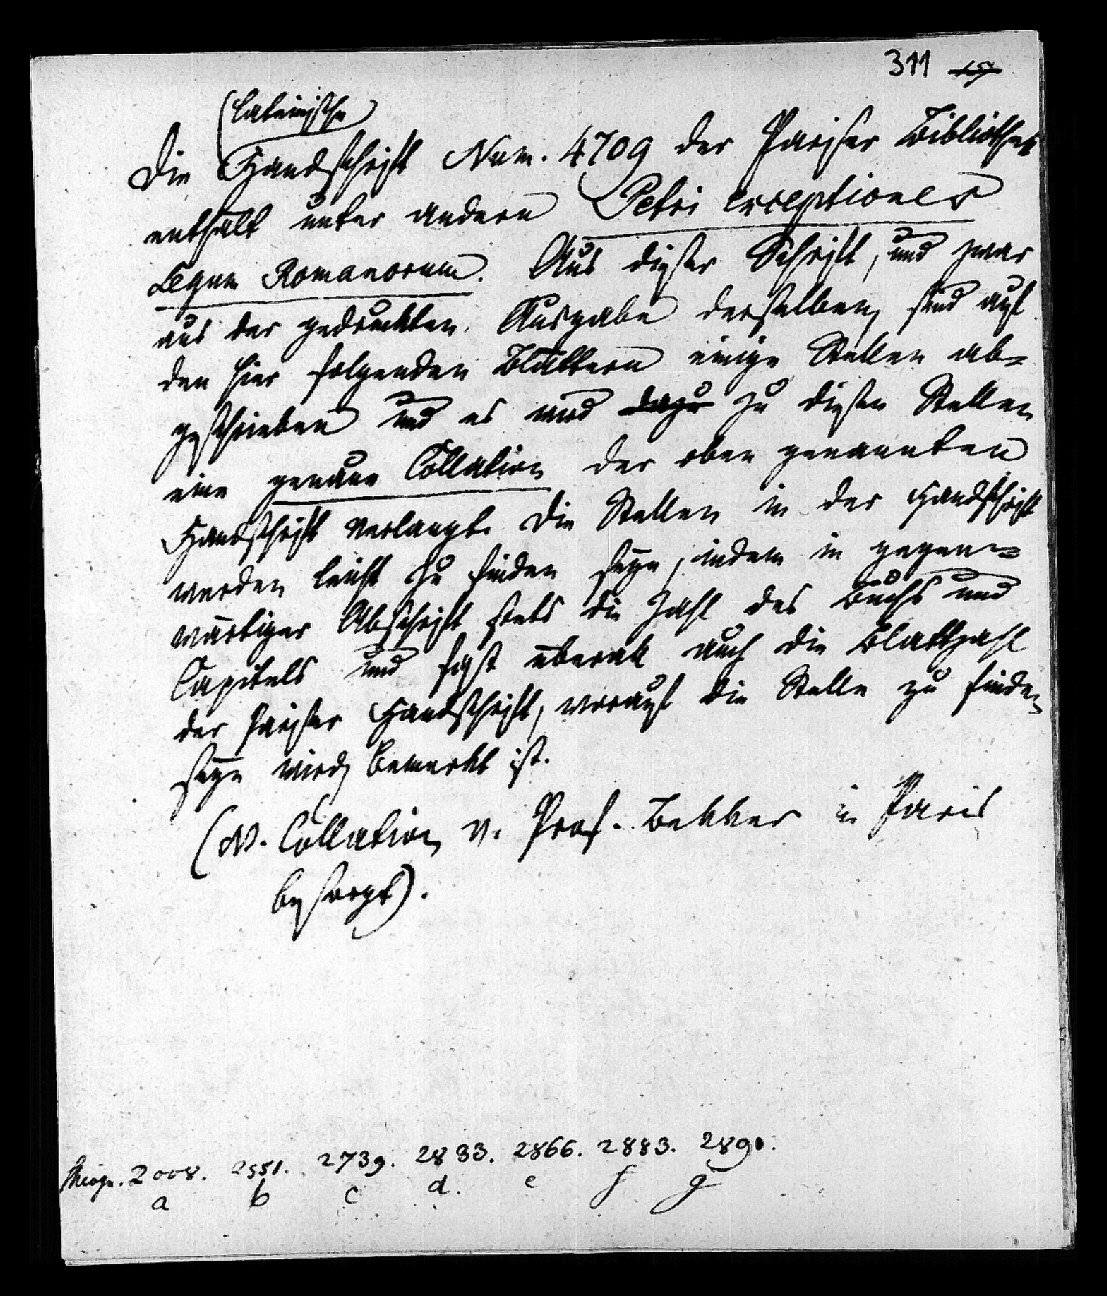 311 19
(lateinische)
Die Handschrift Num. 4709 der Pariser Bibliothek
enthält unter andern Petri exceptiones
Legum Romanorum. Aus dieser Schrift, und zwar
aus der gedruckten Ausgabe derselben, sind auf
den hier folgenden Blättern einige Stellen ab-
geschrieben und es wird dazu zu diesen Stellen
eine genaue Collation der oben genannten
Handschrift verlangt. Die Stellen in der Handschrift
werden leicht zu finden seyn, indem in gegen-
wärtiger Abschrift stets die Zahl des Buchs und
Capitels und fast überall auch die Blattzahl
der Pariser Handschrift, worauf die Stelle zu finden
seyn wird, bemerkt ist.
(N. Collation v. Prof. Bekker in Paris
besorgt).
2008. 2551. 2739. 2833. 2866. 2883. 2890.
a b c d. e f g